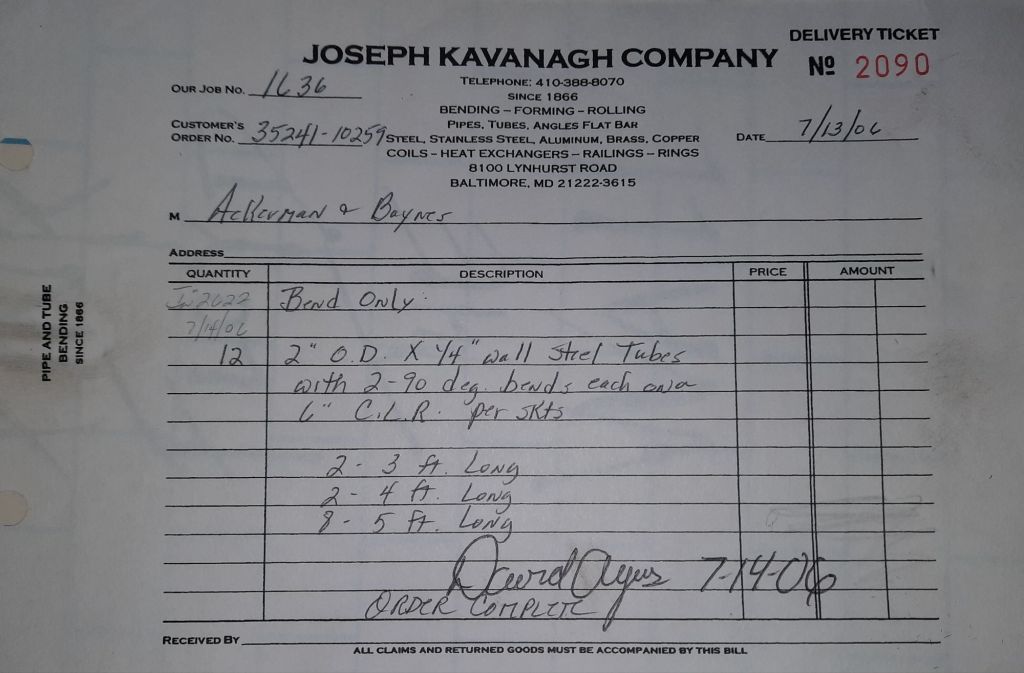 DELIVERY TICKET
JOSEPH KAVANAGH COMPANY
Nº 2090
OUR JOB NO. 1636
TELEPHONE: 410-388-8070
SINCE 1866
BENDING – FORMING – ROLLING
CUSTOMER'S ORDER NO. 35241-10259
PIPES, TUBES, ANGLES FLAT BAR
STEEL, STAINLESS STEEL, ALUMINUM, BRASS, COPPER
DATE 7/13/06
COILS – HEAT EXCHANGERS – RAILINGS – RINGS
8100 LYNHURST ROAD
BALTIMORE, MD 21222-3615
M Ackerman & Baynes
ADDRESS
QUANTITY DESCRIPTION PRICE AMOUNT
2622 Bend Only
7/14/06
12 2" O.D. X 1/4" wall Steel Tubes
with 2-90 deg. bends each on a
6" C.L.R. per skts
2 - 3 ft. Long
2 - 4 ft. Long
8 - 5 ft. Long
David 7-14-06
ORDER COMPLETE
RECEIVED BY
ALL CLAIMS AND RETURNED GOODS MUST BE ACCOMPANIED BY THIS BILL
PIPE AND TUBE
BENDING
SINCE 1866